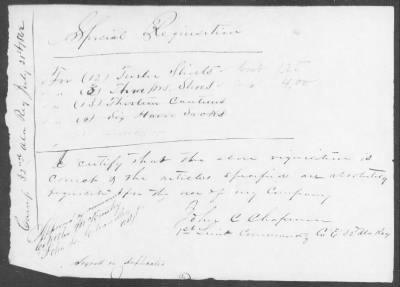 Special Requisition
For (12) Twelve Shirts cost
" (3) Three prs. Shoes " 4,00
" (13) Thirteen Canteens
" (6) Six Haver Sacks
I certify that the above requisition is
correct & the articles specified are absolutely
requisite for the use of my Company
John C Chapman
1st Lieut Commanding Co E 32 Ala Reg
Approved
Issued in duplicate
Camp 32nd Ala Reg July 1862